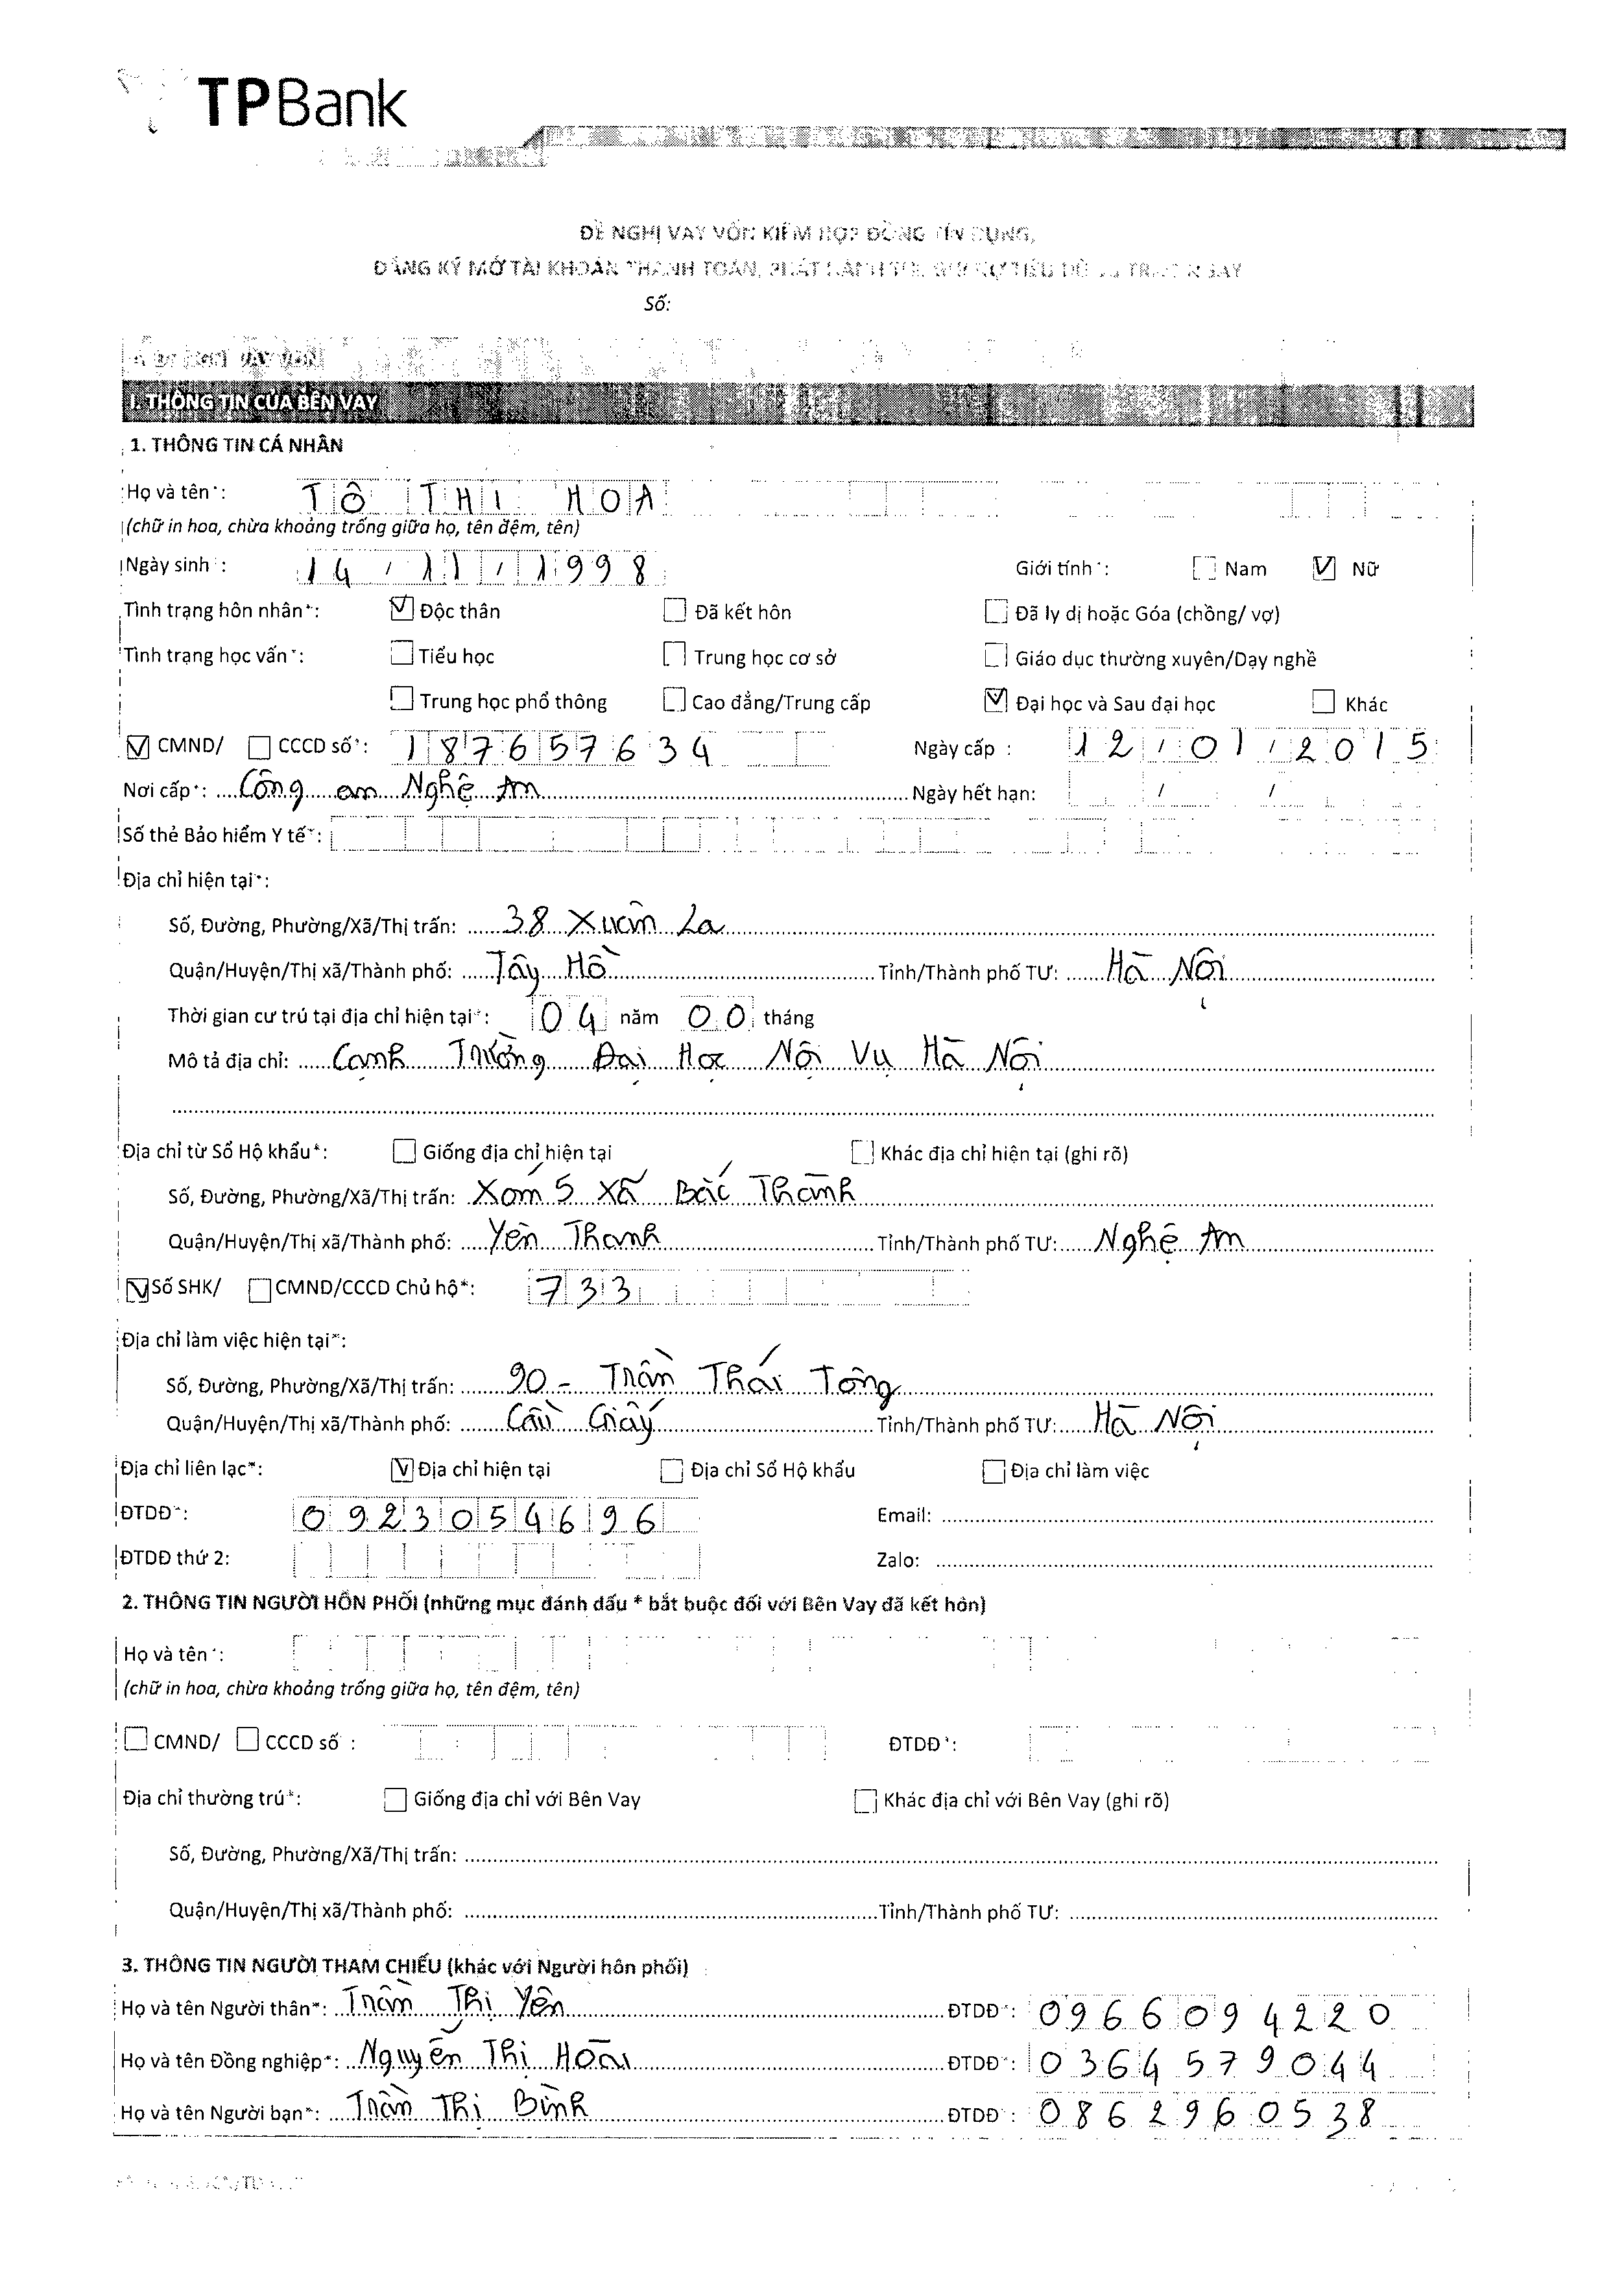 TPBank
ĐỀ NGHỊ VAY VỐN KIÊM HỢP ĐỒNG TÍN DỤNG,
ĐĂNG KÝ MỞ TÀI KHOẢN THANH TOÁN, PHÁT HÀNH
Số:
I. THÔNG TIN CỦA BÊN VAY
1. THÔNG TIN CÁ NHÂN
Họ và tên*: TÔ THI HOA
(chữ in hoa, chừa khoảng trống giữa họ, tên đệm, tên)
Ngày sinh: 14 / 11 / 1998 Giới tính*: Nam V Nữ
Tình trạng hôn nhân*: V Độc thân Đã kết hôn Đã ly dị hoặc Góa (chồng/ vợ)
Tình trạng học vấn*: Tiểu học Trung học cơ sở Giáo dục thường xuyên/Dạy nghề
Trung học phổ thông Cao đẳng/Trung cấp V Đại học và Sau đại học Khác
V CMND/ CCCD số*: 187657634 Ngày cấp : 12 / 01 / 2015
Nơi cấp*: Công an Nghệ An Ngày hết hạn: / /
Số thẻ Bảo hiểm Y tế*:
Địa chỉ hiện tại*:
Số, Đường, Phường/Xã/Thị trấn: 38 Xuân La
Quận/Huyện/Thị xã/Thành phố: Tây Hồ Tỉnh/Thành phố TƯ: Hà Nội
Thời gian cư trú tại địa chỉ hiện tại*: 04 năm 00 tháng
Mô tả địa chỉ: Cạnh Trường Đại Học Nội Vụ Hà Nội
Địa chỉ từ Sổ Hộ khẩu*: Giống địa chỉ hiện tại Khác địa chỉ hiện tại (ghi rõ)
Số, Đường, Phường/Xã/Thị trấn: Xóm 5 Xã Bắc Thành
Quận/Huyện/Thị xã/Thành phố: Yên Thành Tỉnh/Thành phố TƯ: Nghệ An
V Số SHK/ CMND/CCCD Chủ hộ*: 733
Địa chỉ làm việc hiện tại*:
Số, Đường, Phường/Xã/Thị trấn: 90 - Trần Thái Tông
Quận/Huyện/Thị xã/Thành phố: Cầu Giấy Tỉnh/Thành phố TƯ: Hà Nội
Địa chỉ liên lạc*: V Địa chỉ hiện tại Địa chỉ Sổ Hộ khẩu Địa chỉ làm việc
ĐTDĐ*: 0923054696 Email:
ĐTDĐ thứ 2: Zalo:
2. THÔNG TIN NGƯỜI HÔN PHỐI (những mục đánh dấu * bắt buộc đối với Bên Vay đã kết hôn)
Họ và tên*:
(chữ in hoa, chừa khoảng trống giữa họ, tên đệm, tên)
CMND/ CCCD số : ĐTDĐ*:
Địa chỉ thường trú*: Giống địa chỉ với Bên Vay Khác địa chỉ với Bên Vay (ghi rõ)
Số, Đường, Phường/Xã/Thị trấn:
Quận/Huyện/Thị xã/Thành phố: Tỉnh/Thành phố TƯ:
3. THÔNG TIN NGƯỜI THAM CHIẾU (khác với Người hôn phối)
Họ và tên Người thân*: Trần Thị Yên ĐTDĐ*: 0966094220
Họ và tên Đồng nghiệp*: Nguyễn Thị Hoài ĐTDĐ*: 0364579044
Họ và tên Người bạn*: Trần Thị Bình ĐTDĐ*: 0862960538